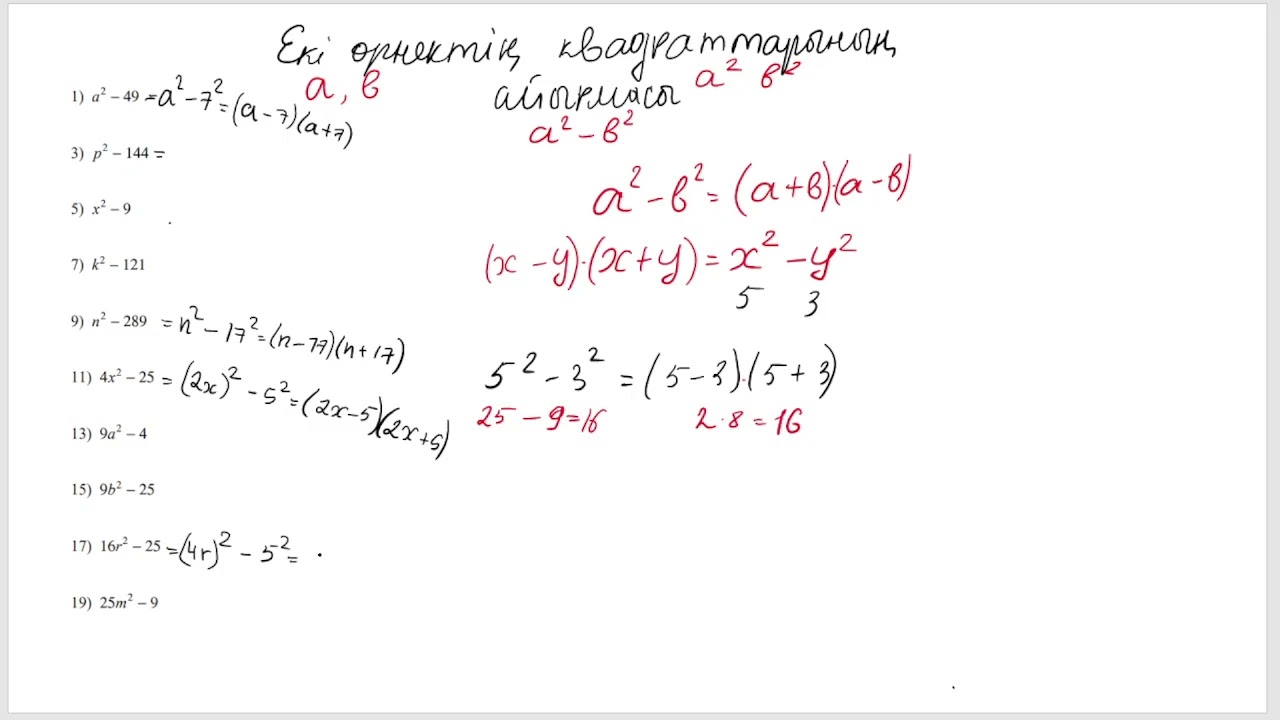 Екі өрнектің квадраттарының
айырмасы
a, в
a² в²
a² – в²
1) a² – 49 = a² – 7² = (a – 7)(a + 7)
3) p² – 144 =
5) x² – 9
7) k² – 121
9) n² – 289 = n² – 17² = (n – 17)(n + 17)
11) 4x² – 25 = (2x)² – 5² = (2x – 5)(2x + 5)
13) 9a² – 4
15) 9b² – 25
17) 16r² – 25 = (4r)² – 5² =
19) 25m² – 9
a² – в² = (a + в)·(a – в)
(x – y)·(x + y) = x² – y²
5 3
5² – 3² = (5 – 3)·(5 + 3)
25 – 9 = 16 2·8 = 16